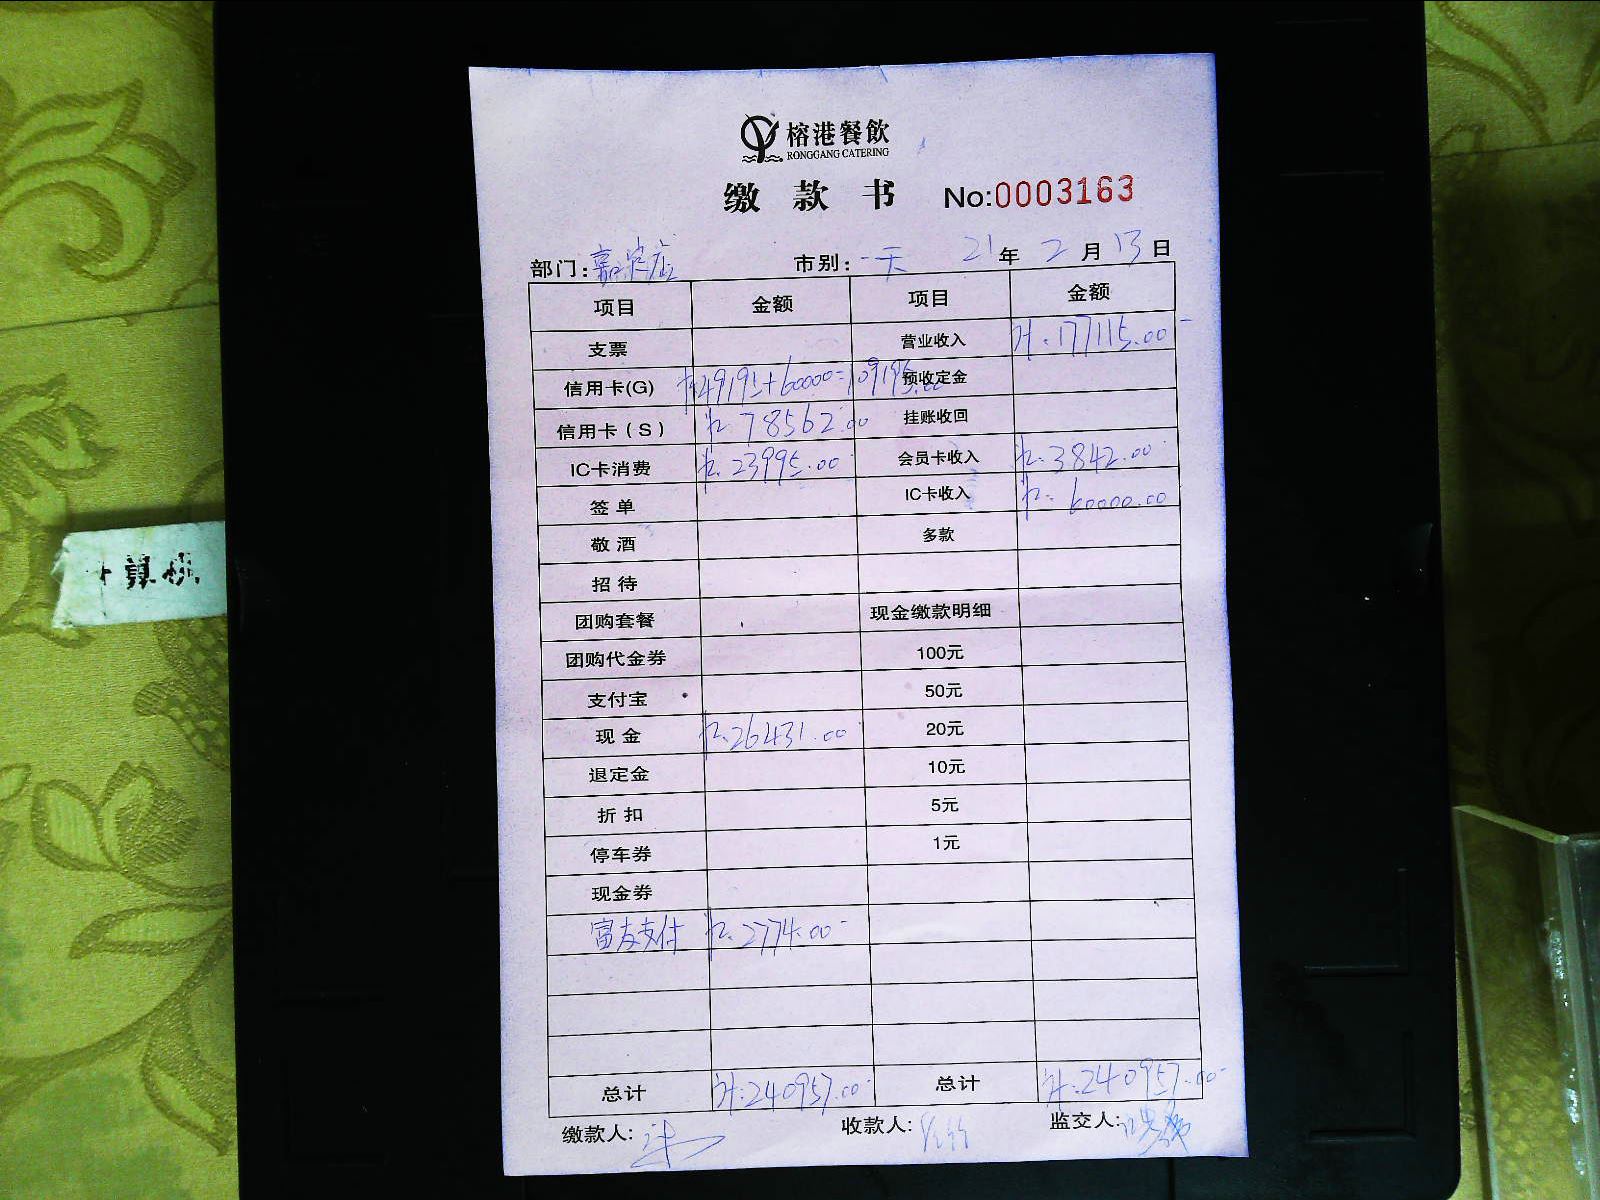 榕港餐飲
RONGGANG CATERING
缴款书 No:0003163
部门:嘉定店 市别:一天 21年2月13日
项目 金额 项目 金额
支票 营业收入 计:177115.00
信用卡(G) 49195+60000=109195.00 预收定金
信用卡(S) 78562.00 挂账收回
IC卡消费 23995.00 会员卡收入 3842.00
签单 IC卡收入 60000.00
敬酒 多款
招待
团购套餐 现金缴款明细
团购代金券 100元
支付宝 50元
现金 26431.00 20元
退定金 10元
折扣 5元
停车券 1元
现金券
富友支付 2774.00
总计 计:240957.00 总计 计:240957.00
缴款人: 收款人: 监交人:
计算机